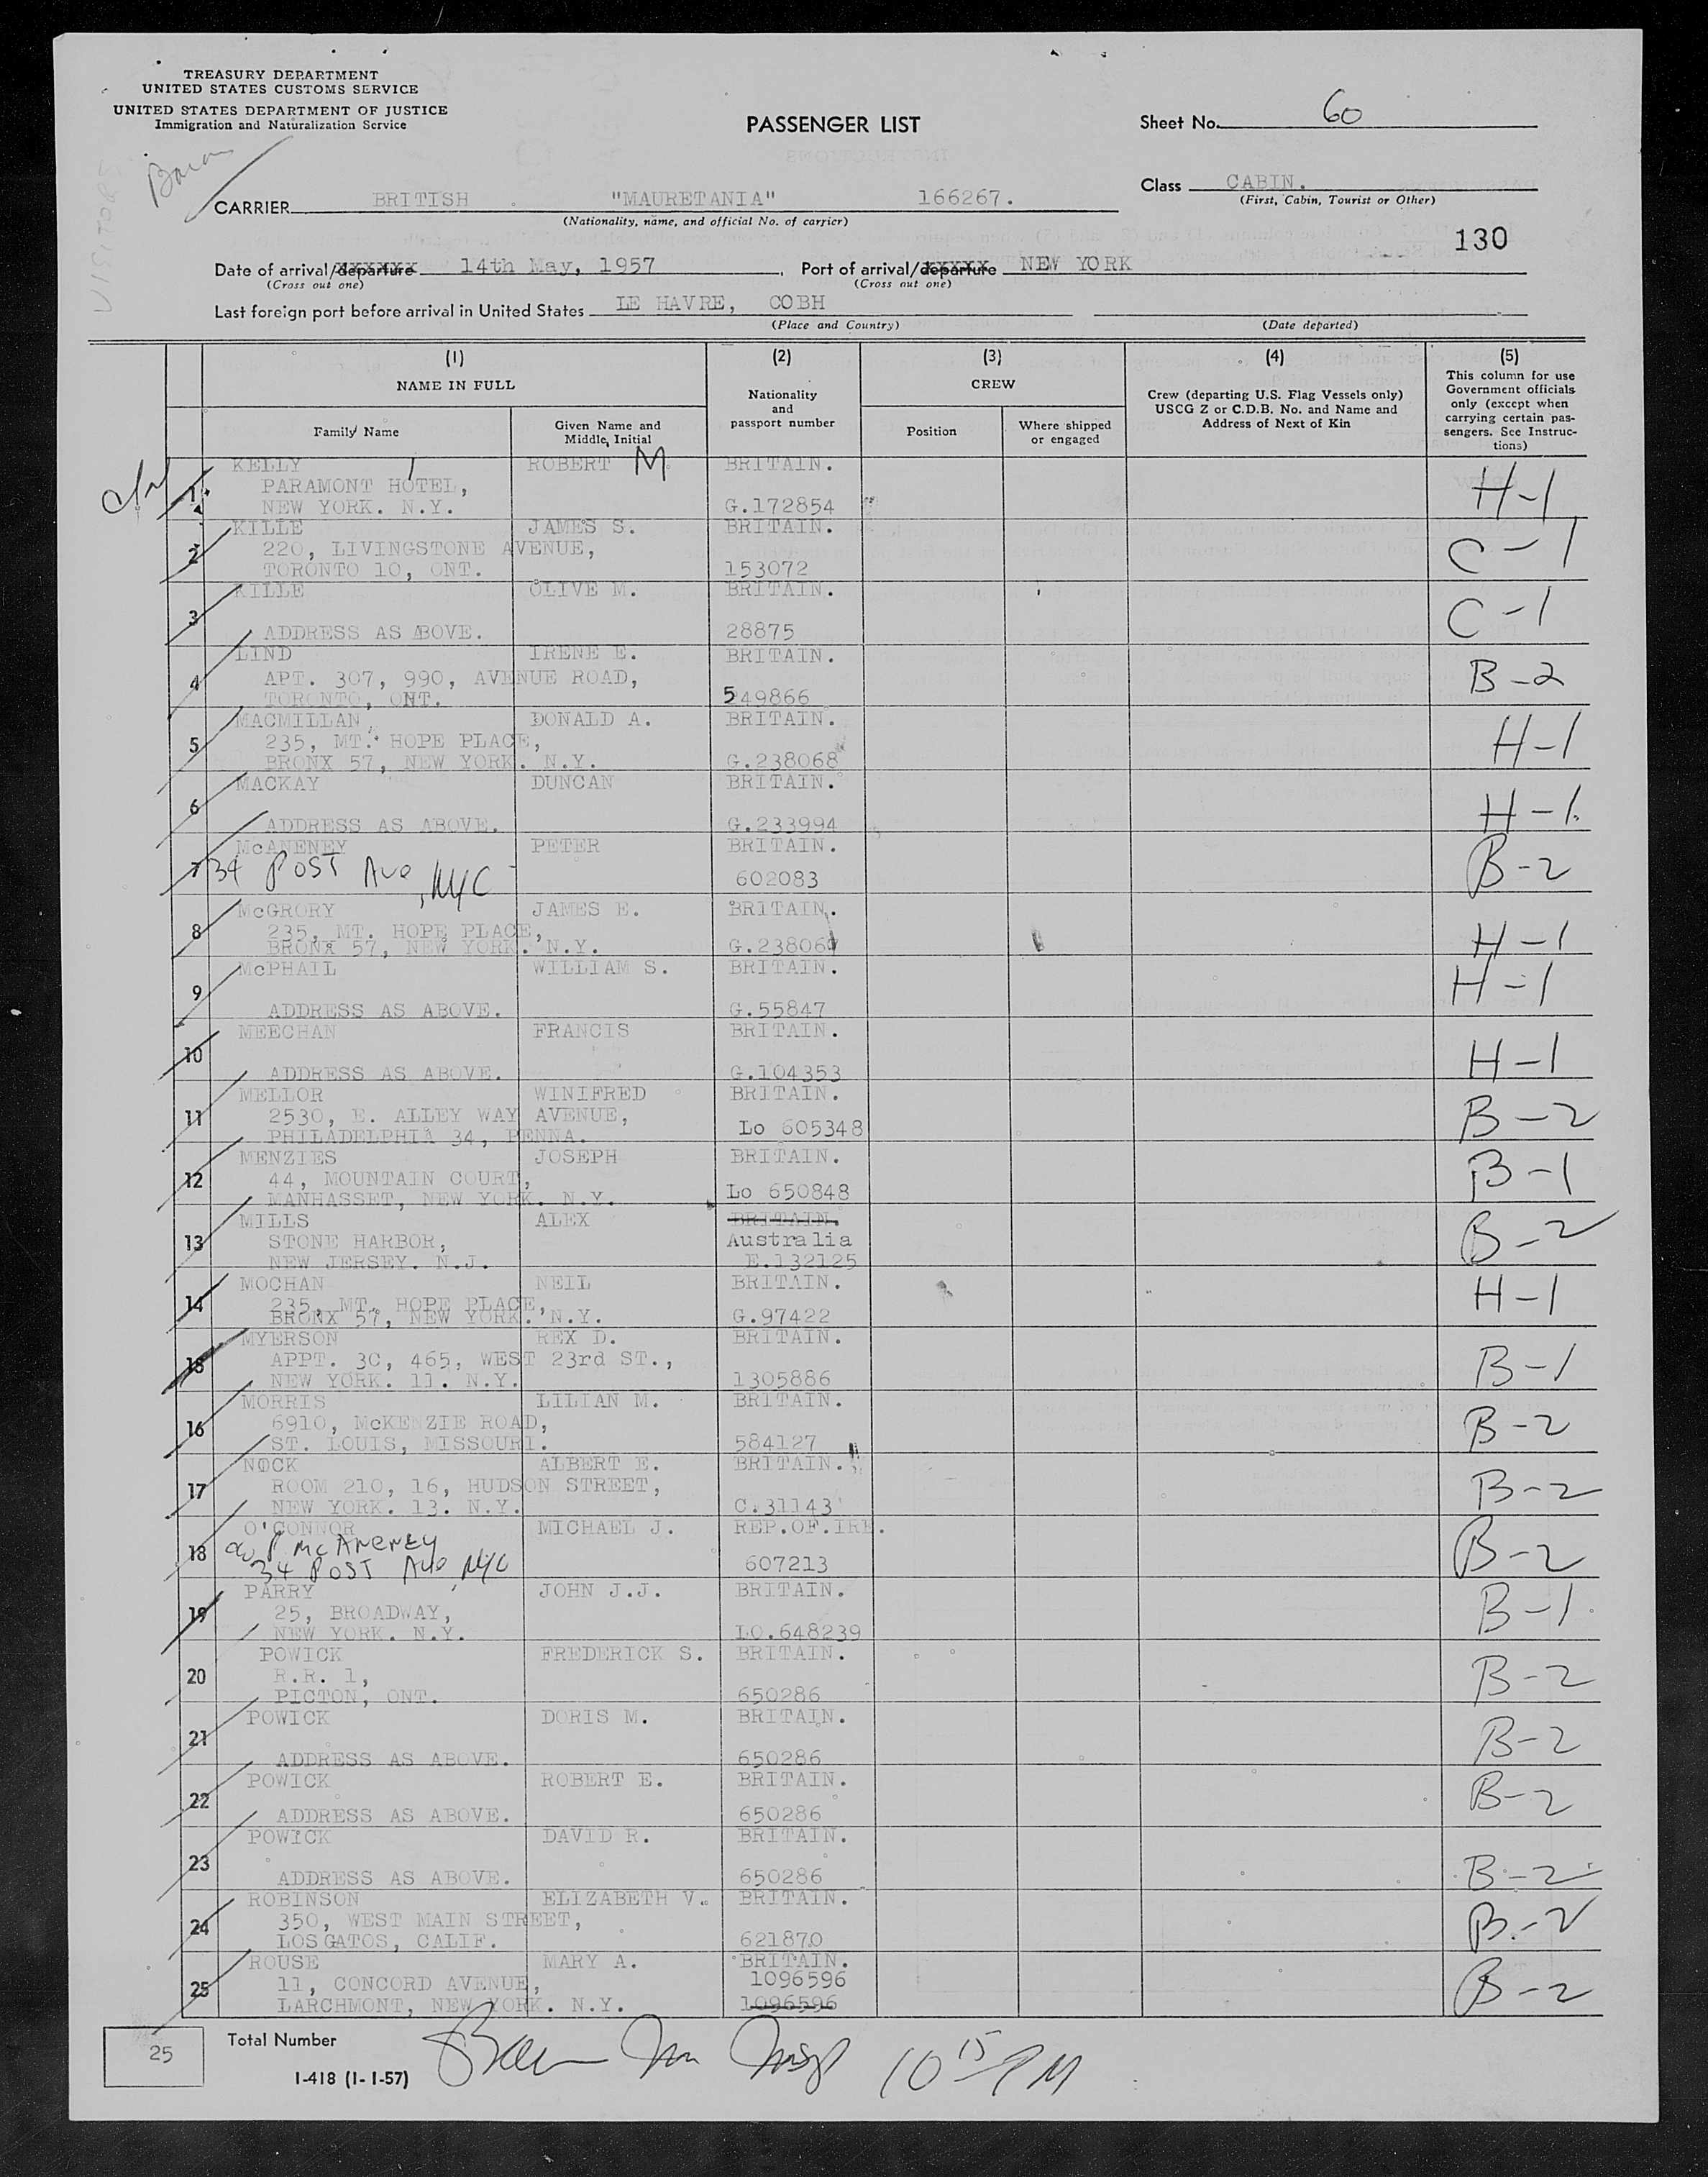 TREASURY DEPARTMENT
UNITED STATES CUSTOMS SERVICE
UNITED STATES DEPARTMENT OF JUSTICE
Immigration and Naturalization Service
PASSENGER LIST
Sheet No. 60
Class CABIN.
(First, Cabin, Tourist or Other)
CARRIER BRITISH "MAURETANIA" 166267.
(Nationality, name, and official No. of carrier)
130
Date of arrival/departure 14th May, 1957, Port of arrival/departure NEW YORK
(Cross out one) (Cross out one)
Last foreign port before arrival in United States LE HAVRE, COBH
(Place and Country) (Date departed)
(1) (2) (3) (4) (5)
NAME IN FULL
Family Name
Given Name and Middle Initial
Nationality and passport number
CREW
Position
Where shipped or engaged
Crew (departing U.S. Flag Vessels only)
USCG Z or C.D.B. No. and Name and
Address of Next of Kin
This column for use
Government officials
only (except when
carrying certain pas-
sengers. See Instruc-
tions)
1 KELLY ROBERT M BRITAIN. H-1
PARAMONT HOTEL,
NEW YORK. N.Y. G.172854
2 KILLE JAMES S. BRITAIN. C-1
220, LIVINGSTONE AVENUE,
TORONTO 10, ONT. 153072
3 KILLE OLIVE M. BRITAIN. C-1
ADDRESS AS ABOVE. 28875
4 LIND IRENE E. BRITAIN. B-2
APT. 307, 990, AVENUE ROAD,
TORONTO, ONT. 549866
5 MACMILLAN DONALD A. BRITAIN. H-1
235, MT. HOPE PLACE,
BRONX 57, NEW YORK. N.Y. G.238068
6 MACKAY DUNCAN BRITAIN. H-1.
ADDRESS AS ABOVE. G.233994
7 McANENEY PETER BRITAIN. B-2
34 POST Ave, NYC 602083
8 McGRORY JAMES E. BRITAIN. H-1
235, MT. HOPE PLACE,
BRONX 57, NEW YORK. N.Y.
9 McPHAIL WILLIAM S. BRITAIN. H-1
ADDRESS AS ABOVE. G.55847
10 MEECHAN FRANCIS BRITAIN. H-1
ADDRESS AS ABOVE. G.104353
11 MELLOR WINIFRED BRITAIN. B-2
2530, E. ALLEY WAY AVENUE, Lo 605348
PHILADELPHIA 34, PENNA.
12 MENZIES JOSEPH BRITAIN. B-1
44, MOUNTAIN COURT,
MANHASSET, NEW YORK. N.Y. Lo 650848
13 MILLS ALEX BRITAIN. B-2
STONE HARBOR, Australia
NEW JERSEY. N.J. E.132125
14 MOCHAN NEIL BRITAIN. H-1
235, MT. HOPE PLACE,
BRONX 57, NEW YORK. N.Y. G.97422
15 MYERSON REX D. BRITAIN. B-1
APPT. 3C, 465, WEST 23rd ST.,
NEW YORK. 11. N.Y. 1305886
16 MORRIS LILIAN M. BRITAIN. B-2
6910, McKENZIE ROAD,
ST. LOUIS, MISSOURI. 584127
17 NOCK ALBERT E. BRITAIN. B-2
ROOM 210, 16, HUDSON STREET,
NEW YORK. 13. N.Y. C.31143
18 O'CONNOR MICHAEL J. REP.OF.IRE. B-2
c/o P McANENEY
34 POST Ave, NYC 607213
19 PARRY JOHN J.J. BRITAIN. B-1
25, BROADWAY,
NEW YORK. N.Y. LO.648239
20 POWICK FREDERICK S. BRITAIN. B-2
R.R. 1,
PICTON, ONT. 650286
21 POWICK DORIS M. BRITAIN. B-2
ADDRESS AS ABOVE. 650286
22 POWICK ROBERT E. BRITAIN. B-2
ADDRESS AS ABOVE. 650286
23 POWICK DAVID R. BRITAIN. B-2
ADDRESS AS ABOVE. 650286
24 ROBINSON ELIZABETH V. BRITAIN. B-2
350, WEST MAIN STREET,
LOS GATOS, CALIF. 621870
25 ROUSE MARY A. BRITAIN. B-2
11, CONCORD AVENUE, 1096596
LARCHMONT, NEW YORK. N.Y. 1096596
25 Total Number
I-418 (1-1-57)
10 15 PM